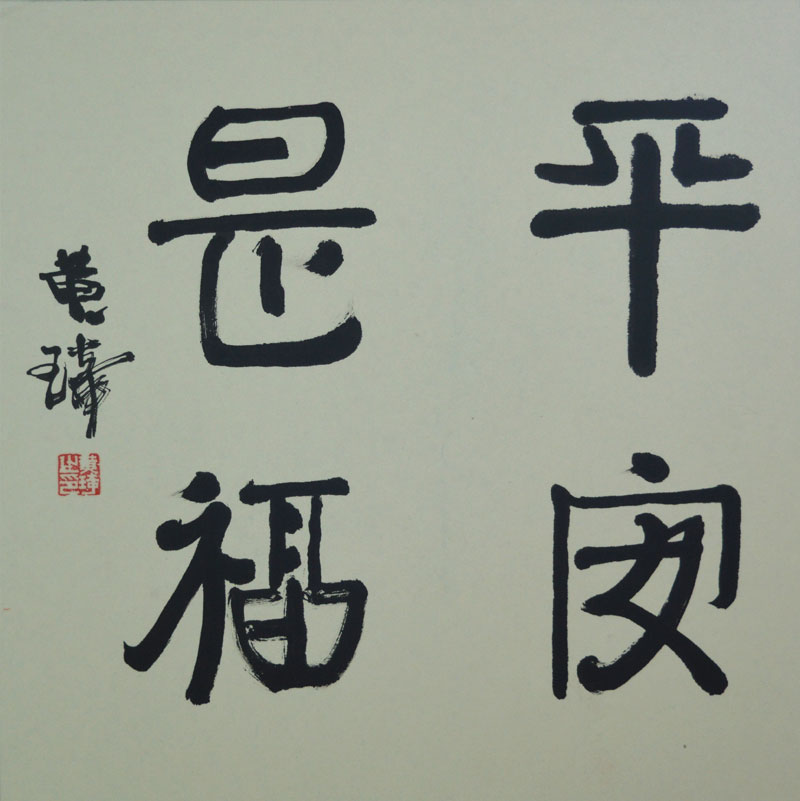 平安
是福
黄瑋